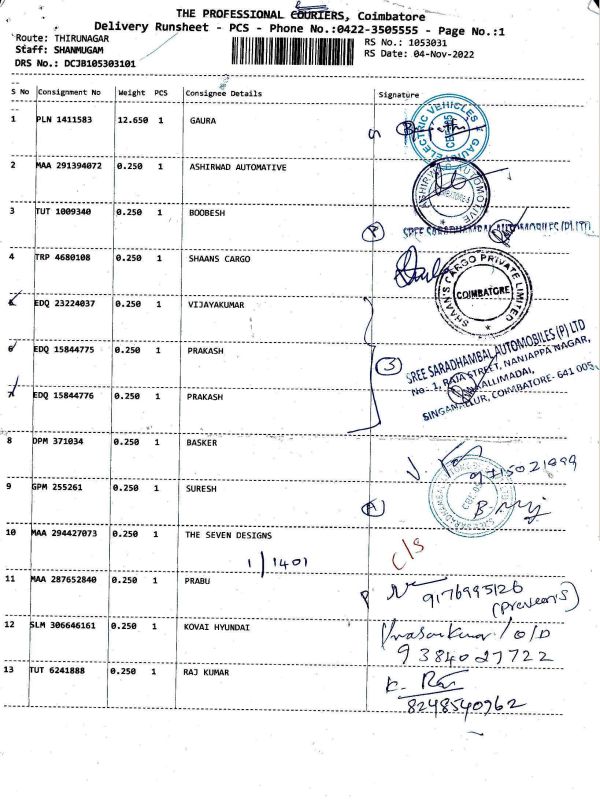 THE PROFESSIONAL COURIERS, Coimbatore
Delivery Runsheet - PCS - Phone No.:0422-3505555 - Page No.:1
Route: THIRUNAGAR
RS No.: 1053031
Staff: SHANMUGAM
RS Date: 04-Nov-2022
DRS No.: DCJB105303101
S No Consignment No Weight PCS Consignee Details Signature
1 PLN 1411583 12.650 1 GAURA
ELECTRIC VEHICLES
2 MAA 291394072 0.250 1 ASHIRWAD AUTOMATIVE
ASHIRWAD AUTOMOTIVE
3 TUT 1009340 0.250 1 BOOBESH
SREE SARADHAMBAL AUTOMOBILES (P) LTD
4 TRP 4680108 0.250 1 SHAANS CARGO
SHAAN'S CARGO PRIVATE LIMITED
COIMBATORE
5 EDQ 23224037 0.250 1 VIJAYAKUMAR
6 EDQ 15844775 0.250 1 PRAKASH
3 SREE SARADHAMBAL AUTOMOBILES (P) LTD
No. 1, RAJA STREET, NANJAPPA NAGAR,
KALLIMADAI,
SINGANALLUR, COIMBATORE- 641 005
7 EDQ 15844776 0.250 1 PRAKASH
8 DPM 371034 0.250 1 BASKER
9715021999
9 GPM 255261 0.250 1 SURESH
10 MAA 294427073 0.250 1 THE SEVEN DESIGNS
1/1401
C/S
11 MAA 287652840 0.250 1 PRABU
9176995126
(Praveen S)
12 SLM 306646161 0.250 1 KOVAI HYUNDAI
9384027722
13 TUT 6241888 0.250 1 RAJ KUMAR
8248540962